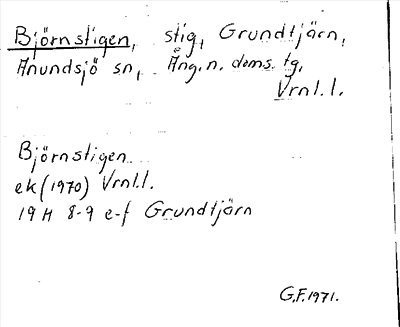 Björnstigen, stig, Grundtjärn,
Anundsjö sn, Ång. n. doms. tg.
Vrnl.l.
Björnstigen
ek (1970) Vrnl.l.
19 H 8-9 e-f Grundtjärn
G.F. 1971.